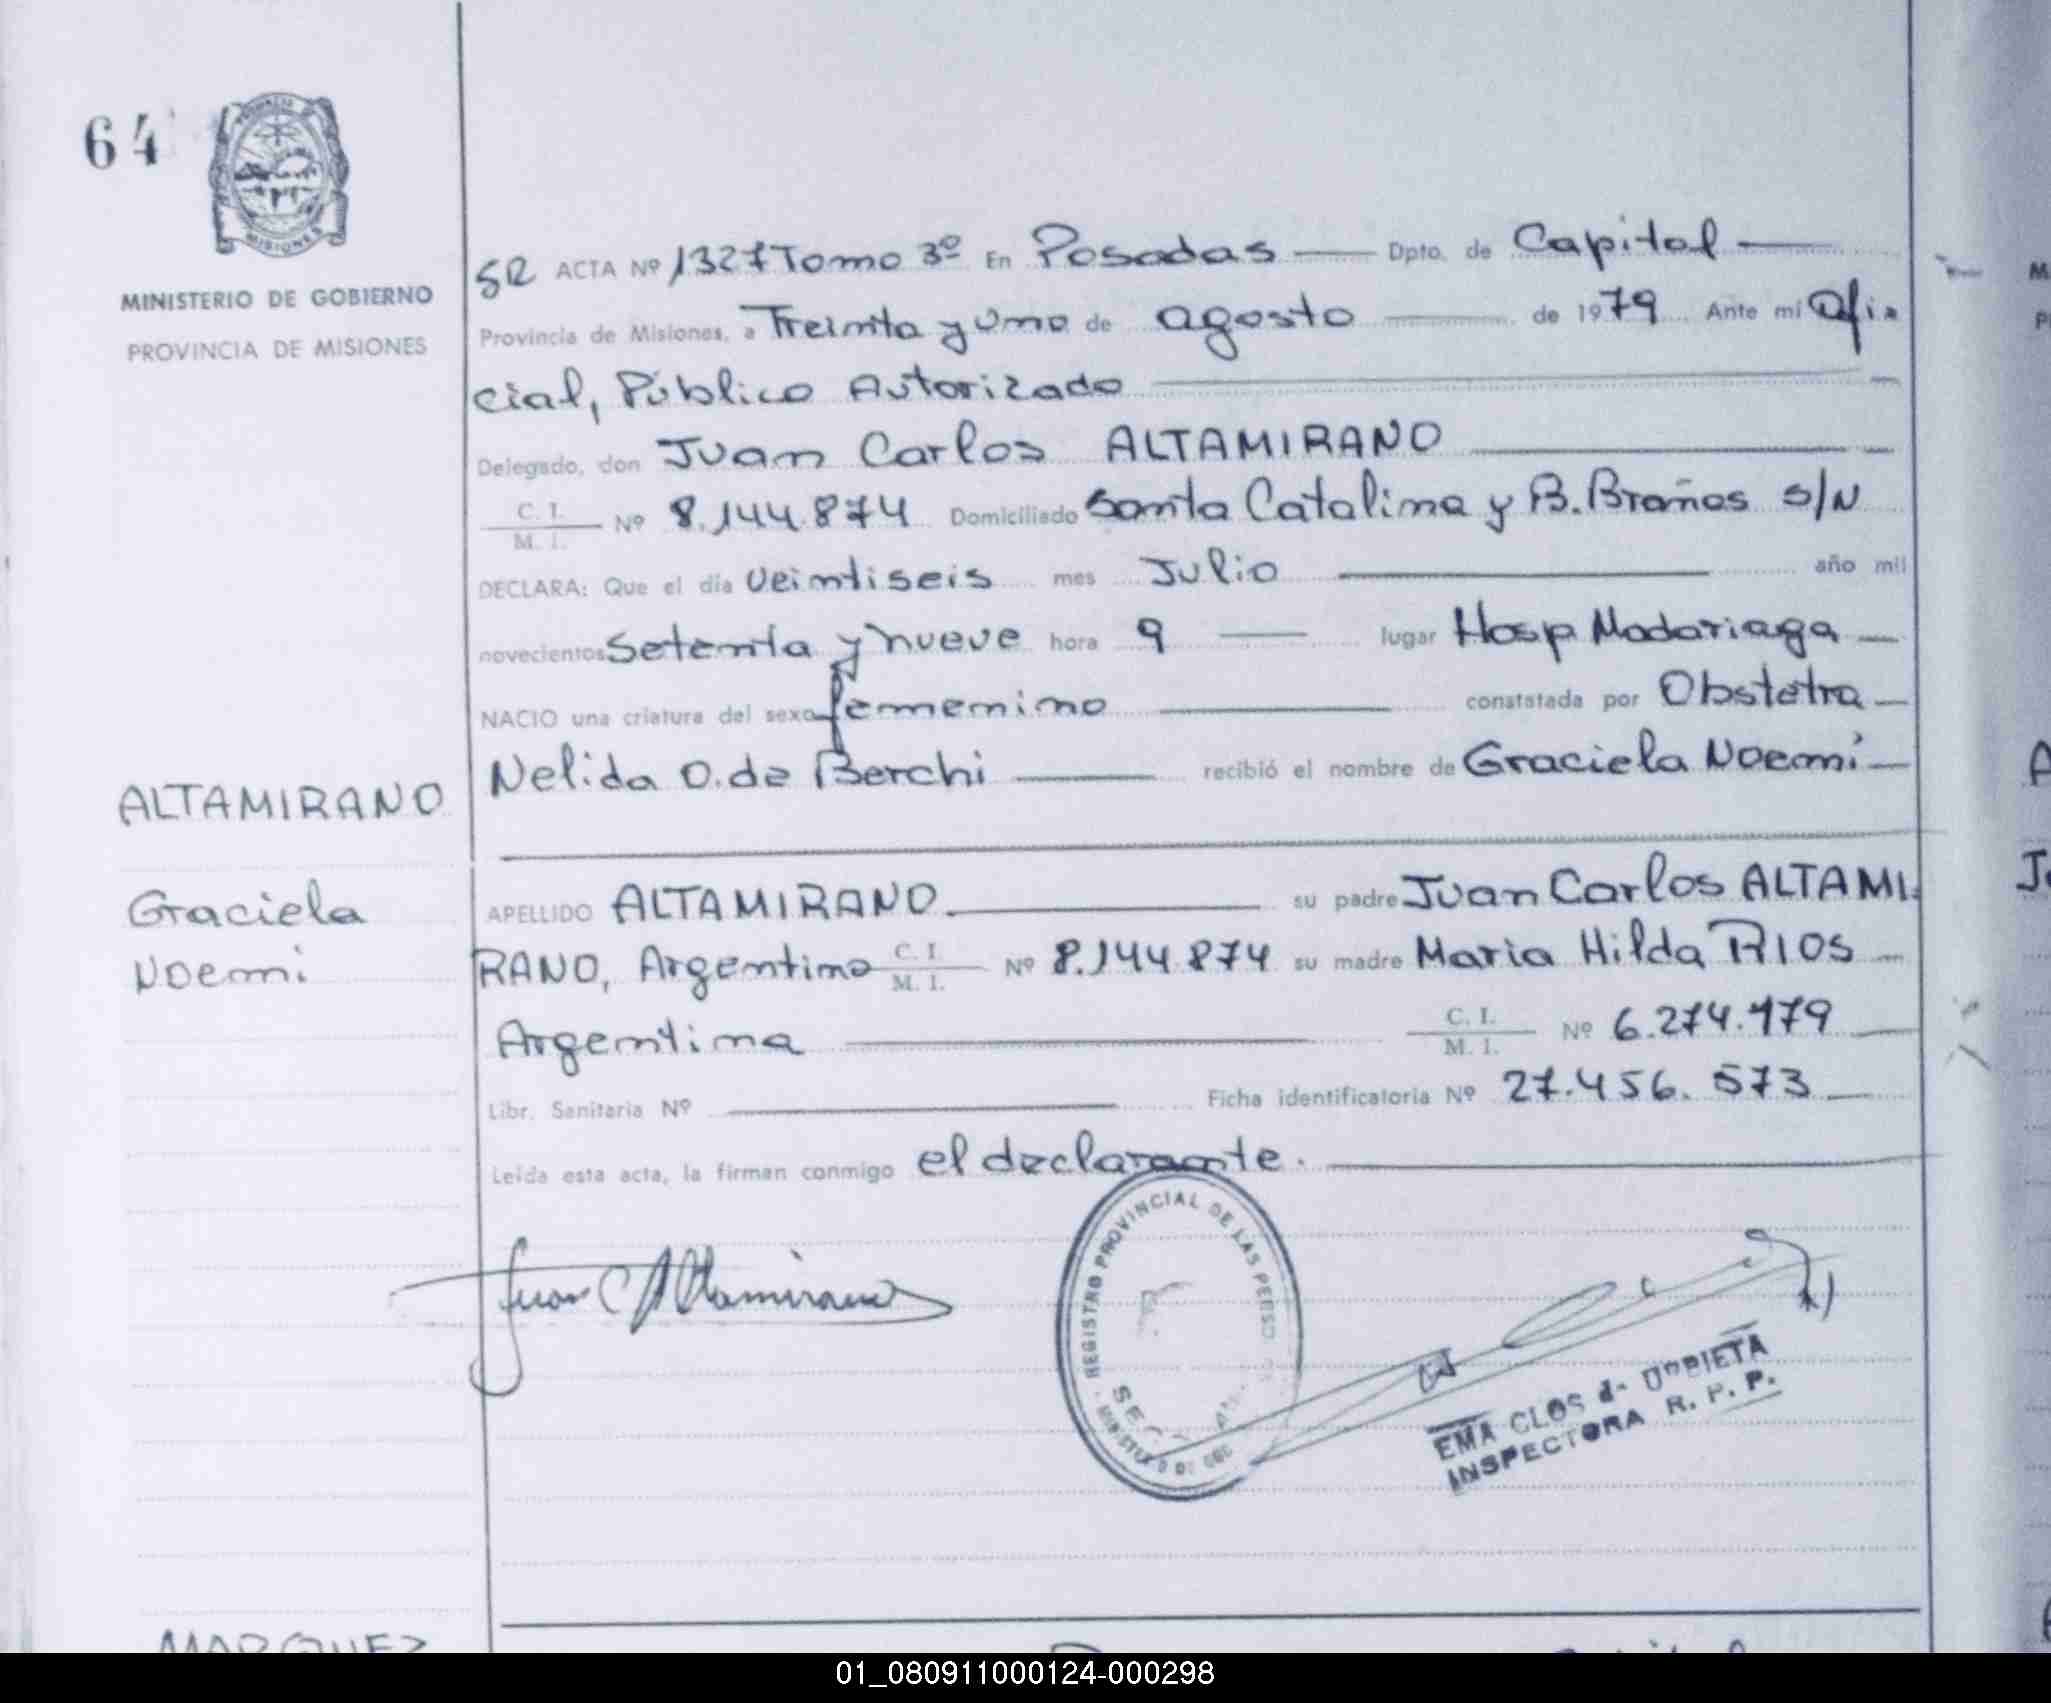 64
MISIONES
MINISTERIO DE GOBIERNO
PROVINCIA DE MISIONES
SR ACTA Nº 1327 Tomo 3º En Posadas Dpto. de Capital
Provincia de Misiones, a Treinta y Uno de agosto de 1979 Ante mi Ofi-
cial, Público Autorizado
Delegado, don Juan Carlos ALTAMIRANO
C. I.
M. I. Nº 8.144.874 Domiciliado Santa Catalina y B. Brañas S/N
DECLARA: Que el día Veintiseis mes Julio año mil
novecientos Setenta y nueve hora 9 lugar Hosp Madariaga
NACIO una criatura del sexo femenino constatada por Obstetra
Nelida O. de Berchi recibió el nombre de Graciela Noemi
ALTAMIRANO
Graciela
Noemi
APELLIDO ALTAMIRANO su padre Juan Carlos ALTAMI-
RANO, Argentino C. I. M. I. Nº 8.144.874 su madre Maria Hilda RIOS
Argentina C. I. M. I. Nº 6.274.179
Libr. Sanitaria Nº Ficha identificatoria Nº 27.456.573
Leída esta acta, la firman conmigo el declarante.
Juan C Altamirano
REGISTRO PROVINCIAL DE LAS PERSO
EMA CLOS de URRIETA
INSPECTORA R. P. P.
MARQUEZ
01_080911000124-000298